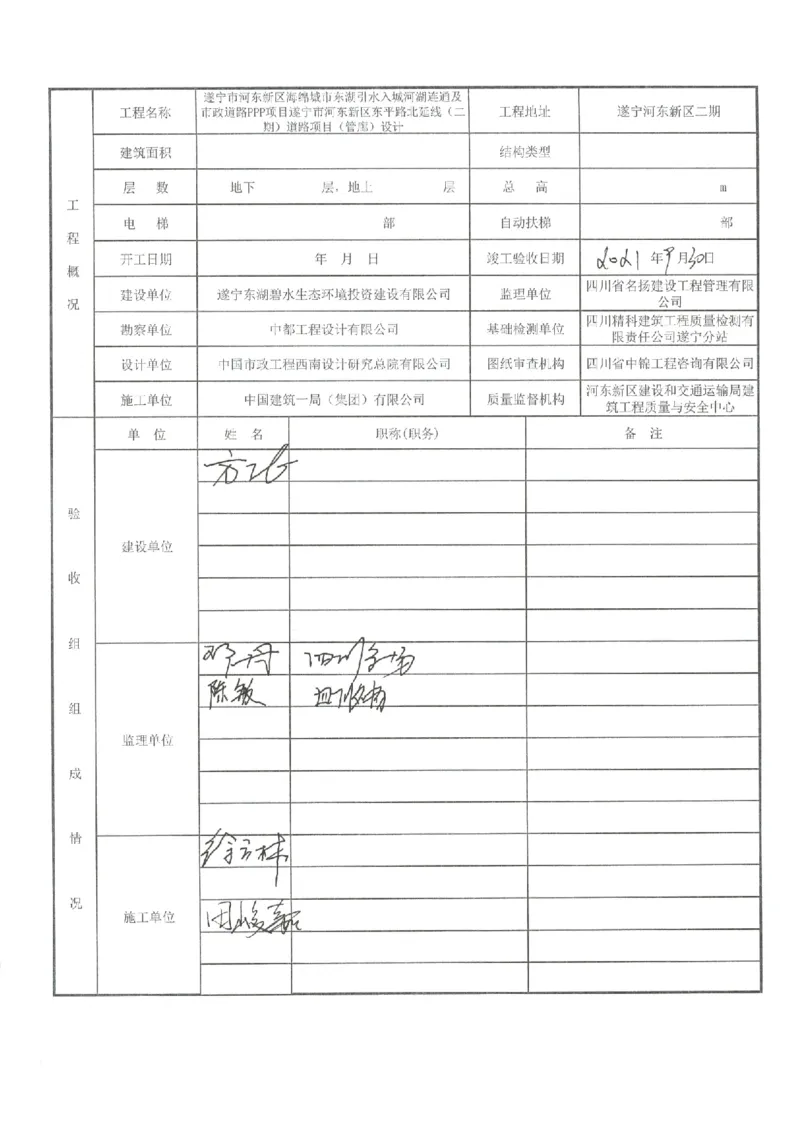 工程概况
工程名称
遂宁市河东新区海绵城市东湖引水入城河湖连通及
市政道路PPP项目遂宁市河东新区东平路北延线（二
期）道路项目（管廊）设计
工程地址
遂宁河东新区二期
建筑面积
结构类型
层 数
地下 层，地上 层
总 高
m
电 梯
部
自动扶梯
部
开工日期
年 月 日
竣工验收日期
2021年9月30日
建设单位
遂宁东湖碧水生态环境投资建设有限公司
监理单位
四川省名扬建设工程管理有限
公司
勘察单位
中都工程设计有限公司
基础检测单位
四川精科建筑工程质量检测有
限责任公司遂宁分站
设计单位
中国市政工程西南设计研究总院有限公司
图纸审查机构
四川省中锦工程咨询有限公司
施工单位
中国建筑一局（集团）有限公司
质量监督机构
河东新区建设和交通运输局建
筑工程质量与安全中心
验收组组成情况
单 位
姓 名
职称(职务)
备 注
建设单位
监理单位
邓丹
陈敏
施工单位